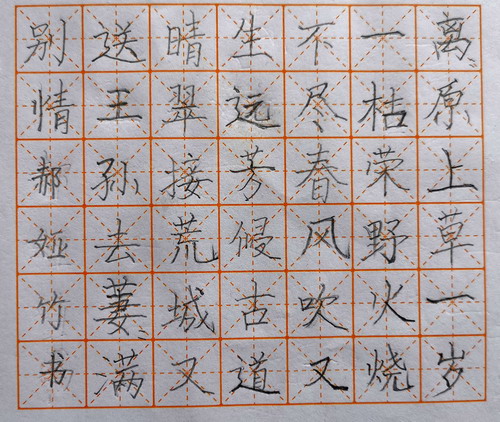 离々原上草一岁
一枯荣野火烧
不尽春风吹又
生远芳侵古道
晴翠接荒城又
送王孙去萋々满
别情郝娅竹书